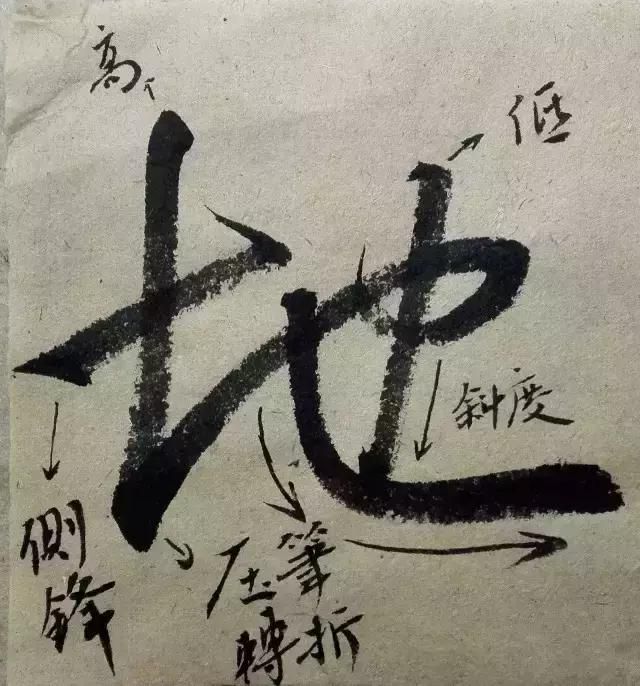 高
低
地
斜度
側鋒
压筆
轉折